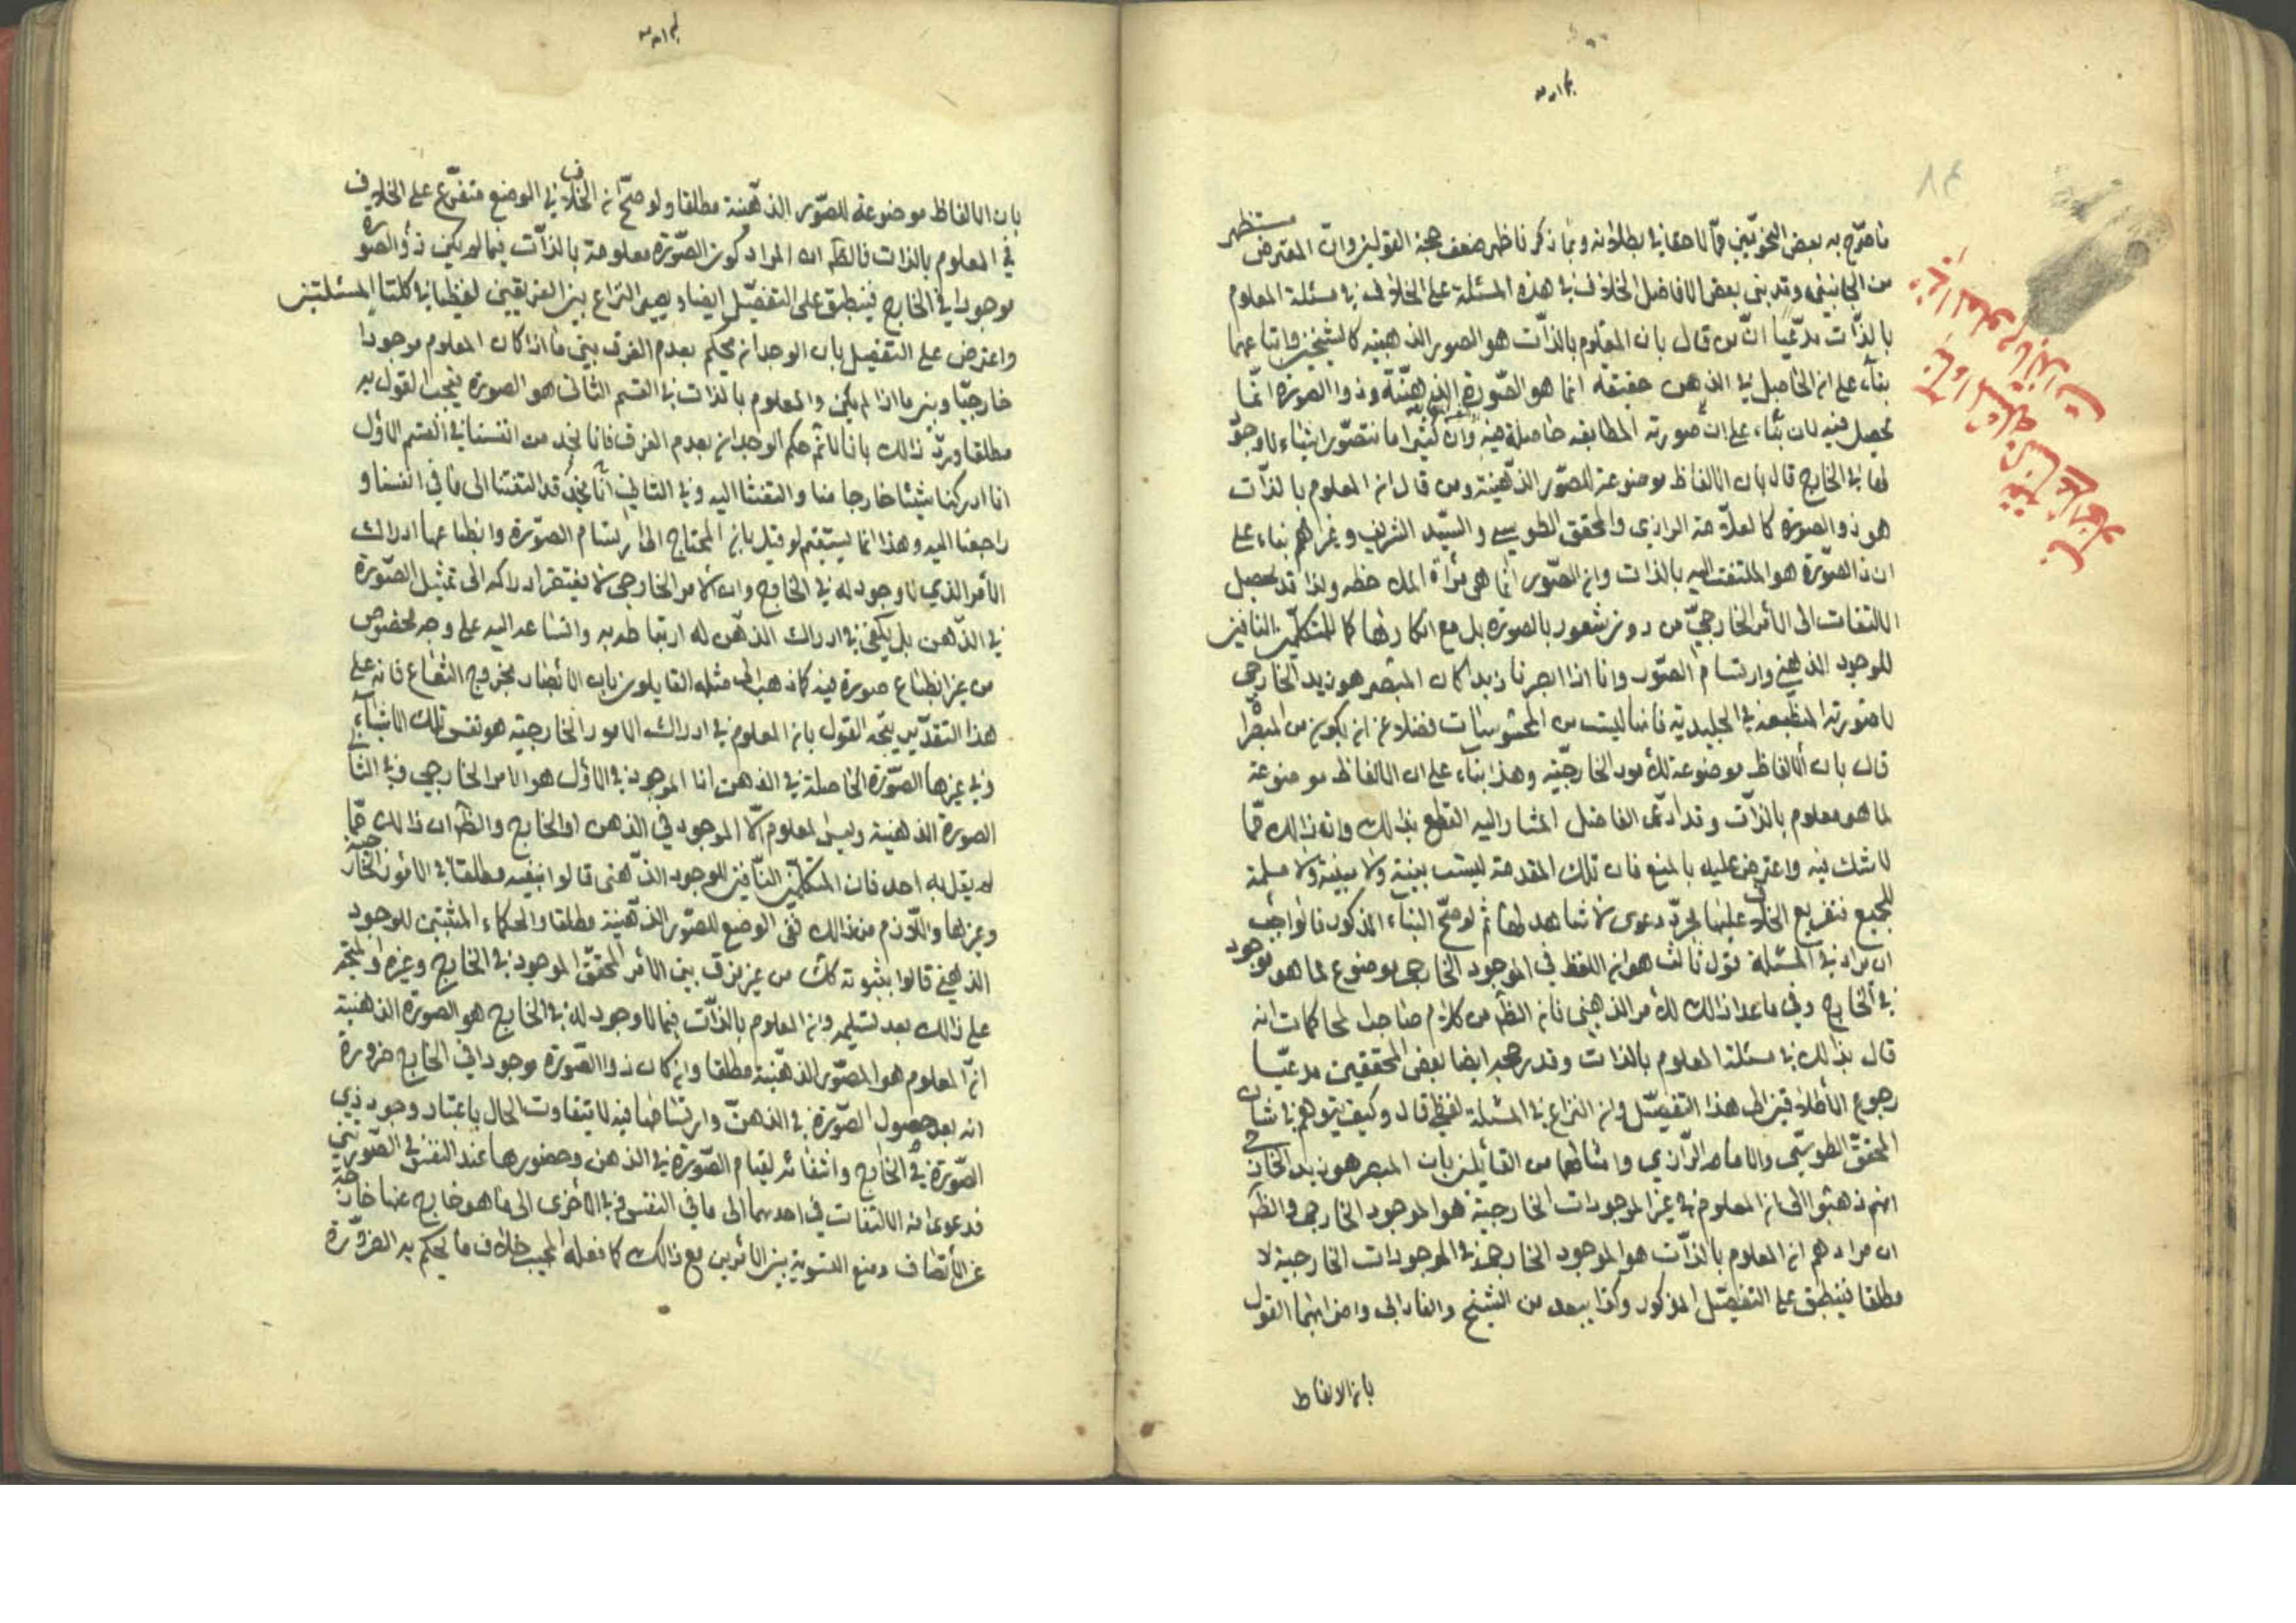 ما صرّح به بعض النحويين ممّا لا خفا في بطلانه وبما ذكرنا ظهر ضعف حجة القولين وانّ المعترض مستظهر
من الجانبين وقد بنى بعض الافاضل الخلاف في هذه المسئلة على الخلاف في مسئلة المعلوم
بالذّات مدّعيا انّ من قال بان المعلوم بالذّات هو الصور الذهنيه كالشيخين واتباعهما
بناء على ان الحاصل في الذهن حقيقه انما هو الصّورة الذهنيّة وذو الصورة انّما
يحصل فيه بناء على ان صورته المطابقه حاصلة فيه وان كثيرا ما نتصوّر اشياء لا وجود
لها في الخارج قال بان الالفاظ موضوعة للصّور الذّهنية ومن قال ان المعلوم بالذّات
هو ذو الصورة كالعلّامة الرازي والمحقق الطوسي والسيّد الشريف وغيرهم بناء على
ان ذا الصّورة هو الملتفت اليه بالذات وان الصّور انما هى مرآة لملاحظه ولذا قد يحصل
الالتفات الى الأمر الخارجيّ من دون شعور بالصورة بل مع انكارها كما للمتكلّمين النافين
للوجود الذهني وارتسام الصّور وانا اذا ابصرنا زيدا كان المبصر هو زيد الخارجي
لا صورته المنطبعة في الجليدية فانها ليست من المحسوسات فضلا عن ان يكون من المبصرا
قال بان الالفاظ موضوعة للأمور الخارجيّة وهذا بناء على ان الالفاظ موضوعة
لما هو معلوم بالذّات وقد ادّعى الفاضل المشار اليه القطع بذلك وان ذلك ممّا
لا شك فيه واعترض عليه بالمنع فان تلك المقدمة ليست بينة ولا مبينة ولا مسلمة
للجميع فتفريع الخلاف عليها مجرّد دعوى لا شاهد لها ثم لو صحّ البناء المذكور فالواجب
ان يزاد في المسئلة قول ثالث هو ان اللفظ في الموجود الخارجي موضوع لما هو موجود
في الخارج وفي ما عدا ذلك للأمر الذهنى فان الظّ من كلام صاحب المحاكمات انه
قال بذلك في مسئلة المعلوم بالذات وقد رجحه ايضا بعض المحققين مدعيّا
رجوع الأطلاقين الى هذا التفصّيل وان النزاع في المسئلة لفظي قال وكيف يتوهم في شان
المحققّ الطوسّي والامام الرّازي وامثالهما من القائلين بان المبصر هو زيد الخارجي
انهم ذهبوا الى ان المعلوم في غير الموجودات الخارجية هو الموجود الخارجي والظّ
ان مرادهم ان المعلوم بالذّات هو الموجود الخارجى في الموجودات الخارجية لا
مطلقا فينطبق على التفصّيل المذكور وكذا يبعد من الشيخ والفارابى واضرابهما القول
بان الالفاظ
بان الالفاظ موضوعة للصّور الذهّنية مطلقا ولو صحّ ان الخلاف في الوضع متفرّع على الخلاف
في المعلوم بالذات فالظّ ان المراد كون الصّورة معلومة بالذّات فيما لم يكن ذو الصورة
موجودا في الخارج فينطبق على التفصّيل ايضا ويصير النزاع بين الفريقين لفظيا في كلتا المسئلتين
واعترض على التفصيل بان الوجدان يحكم بعدم الفرق بين ما اذا كان المعلوم موجودا
خارجيّا وبين ما اذا لم يكن والمعلوم بالذات في القسم الثانى هو الصورة فيجب القول به
مطلقا وردّ ذلك بانا لا نم حكم الوجدان بعدم الفرق فانا نجد من انفسنا في القسم الاوّل
انا ادركنا شيئا خارجا منا والتفتنا اليه وفي الثاني انا نجد قد التفتنا الى ما في انفسنا و
راجعنا اليه وهذا انما يستقيم لو قيل بان المحتاج الى ارتسام الصّورة وانطباعها ادراك
الأمر الذي لا وجود له في الخارج وان الأمر الخارجي لا يفتقر ادراكه الى تمثيل الصّورة
في الذّهن بل يكفى في ادراك الذهن له ارتباطه به والتساعد اليه على وجه مخصوص
من غير انطباع صورة فيه كما ذهب الى مثله القايلون بان الأبصار بخروج الشّعاع فانه على
هذا التقدّير يتّجه القول بان المعلوم في ادراك الامور الخارجيّة هو نفس تلك الأشياء
وفي غيرها الصّورة الحاصلة في الذهن اذا الموجود في الاوّل هو الأمر الخارجي وفي الثاني
الصورة الذهنية وليس المعلوم الّا الموجود في الذهن او الخارج والظّ ان ذلك ممّا
لم يقل به احد فان المتكلمّين النّافين للوجود الذّهنى قالوا بنفيه مطلقا في الأمور الخارجية
وغيرها واللّازم من ذلك نفى الوضع للصّور الذّهنية مطلقا والحكماء المثبتين للوجود
الذهني قالوا بثبوته كك من غير فرق بين الأمر المحققّ الموجود في الخارج وغيره والمتّجه
على ذلك بعد تسليم ان المعلوم بالذّات فيما لا وجود له في الخارج هو الصّورة الذهنية
انّ المعلوم هو الصّور الذهّنية مطلقا وان كان ذو الصّورة موجودا في الخارج ضرورة
انه بعد حصول الصّورة في الذهنّ وارتسامها فيه لا يتفاوت الحال باعتبار وجود ذي
الصّورة في الخارج وانتفائه لقيام الصّورة في الذهن وحضورها عند النفس في الصّورتين
فدعوى ان الالتفات في احدهما الى ما في النفس وفي الأخرى الى ما هو خارج عنها خارجة
عن الأنصاف ومنع التسوية بين الأمرين مع ذلك كما فعله المجيب خلاف ما يحكم به الضروّرة